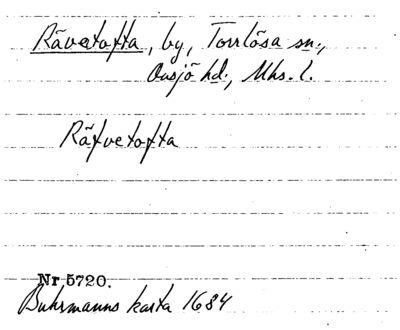 Rävatofta, by, Torrlösa sn.,
Onsjö hd., Mhs. l.
Räfvetofta
Nr 5720.
Buhrmanns karta 1684